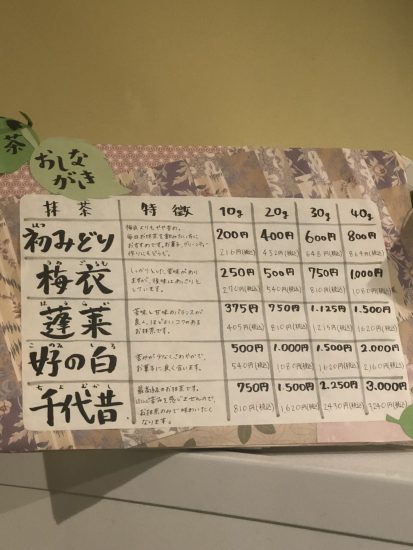 茶
おしな
がき
抹茶 特徴 10g 20g 30g 40g
はつ
初みどり
梅衣よりもやや苦め。
毎日お抹茶を飲みたい方に
おすすめです。お菓子、グリーンティー
作りにもどうぞ。
200円 400円 600円 800円
216円(税込) 432円(税込) 648円(税込) 864円(税込)
梅衣
しっかりとした苦味があり
ますが、後味はあっさりと
しています。
250円 500円 750円 1000円
270円(税込) 540円(税込) 810円(税込) 1080円(税込)
蓬莱
苦味と甘味のバランスが
良く、ほどよいコクのある
お抹茶です。
375円 750円 1.125円 1.500円
405円(税込) 810円(税込) 1215円(税込) 1620円(税込)
このみ しろ
好の白
苦みが少なくまろやかで、
お菓子に良く合います。
500円 1.000円 1.500円 2.000円
540円(税込) 1080円(税込) 1620円(税込) 2160円(税込)
ちよ むかし
千代昔
最高級のお抹茶です。
苦みを感じませんので、
お抹茶のみで味わいたく
なります。
750円 1.500円 2.250円 3.000円
810円(税込) 1620円(税込) 2430円(税込) 3240円(税込)